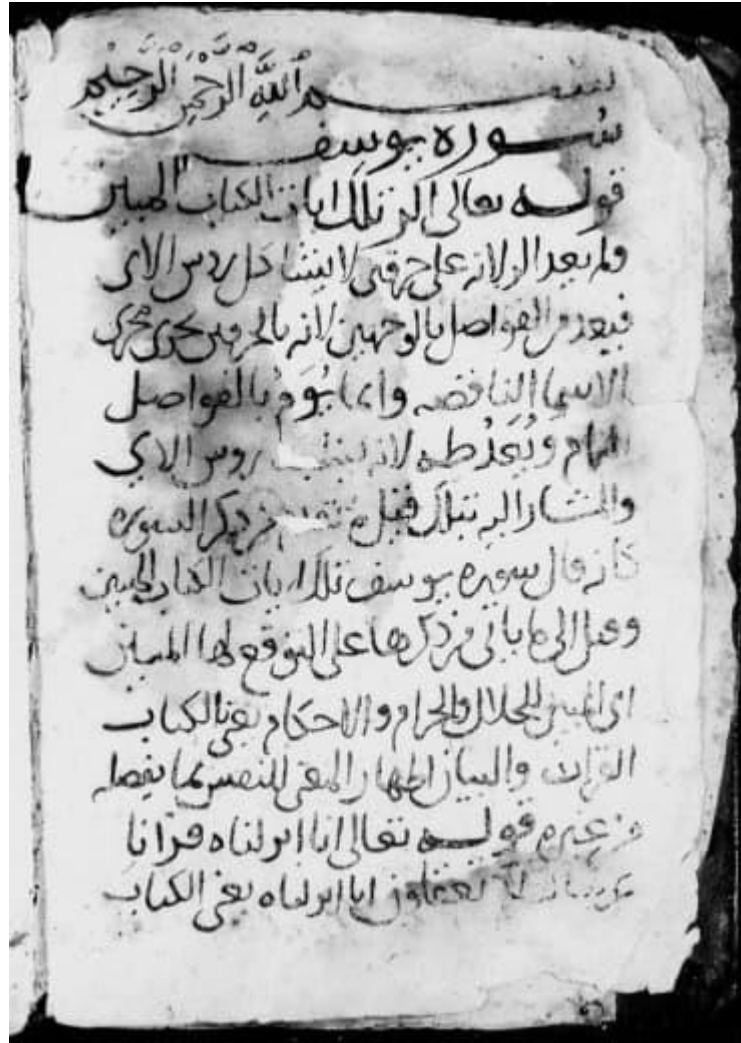 بسم اللّٰه الرَّحْمٰن الرَّحِيم
سُوره يوسف
قوله تعالى الر تلك ايات الكتاب المبين
ولم يعد الر لانه على حرفين لا يشاكل روس الاي
فيعد من الفواصل بالوجهين لانه بالحرفين يجري مجرى
الاسما الناقصه وانما يُوَم بالفواصل
التمام ويُعَدُ طه لانه يشبه روس الاي
والمشار اليه بتلك قيل ما تقدم من ذكر السوره
كانه قال سوره يوسف تلك ايات الكتاب المبين
وقيل الى ما ياتي من ذكرها على التوقع لها المبين
اي المبين للحلال والحرام والاحكام يعني بالكتاب
القران والبيان اظهار المعنى للنفس بما يفصله
من غيره قوله تعالى انا انزلناه قرانا
عربيا تعقلون انا انزلناه يعني الكتاب